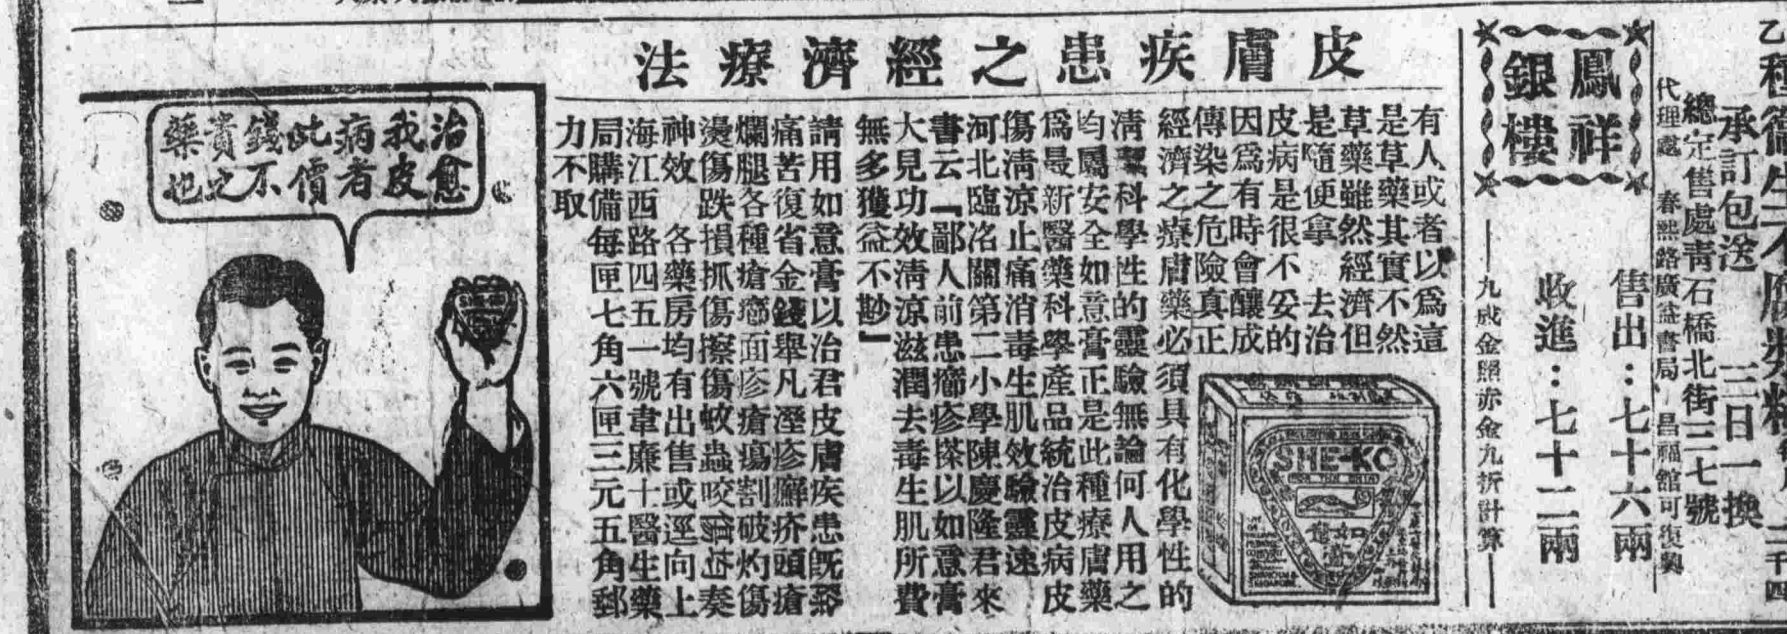 承訂包送 三日一換
總定售處青石橋北街三七號
代理處 春熙路廣益書局 昌福館可復興
鳳祥
銀樓
售出：七十六兩
收進：七十二兩
九成金照赤金九折計算
皮膚疾患之經濟療法
有人或者以爲這
是草藥其實不然
草藥雖然經濟但
是隨便拿 去治
皮病是很不妥的
因爲有時會釀成
傳染之危險真正
經濟之療膚藥必須具有化學性的
科學性的靈驗無論何人用之
均屬安全如意膏正是此種療膚藥
爲最新醫藥科學產品統治皮病皮
傷清涼止痛消毒生肌效驗靈速
河北臨洺關第二小學陳慶隆君來
書云「鄙人前患癤疹搽以如意膏
大見功效清涼滋潤去毒生肌所費
無多獲益不尠」
請用如意膏以治君皮膚疾患既
痛苦復省金錢舉凡溼疹癬疥頭瘡
爛腿各種瘡癤面疹瘡瘍割破灼傷
燙傷跌損抓傷擦傷蚊蟲咬
奏
神效 各藥房均有出售或逕向上
海江西路四五一號韋廉士醫生藥
局購備每匣七角六匣三元五角郵
力不取
SHE-KO
如意膏
治愈
我皮
病者
此價
錢不
貴之
藥也